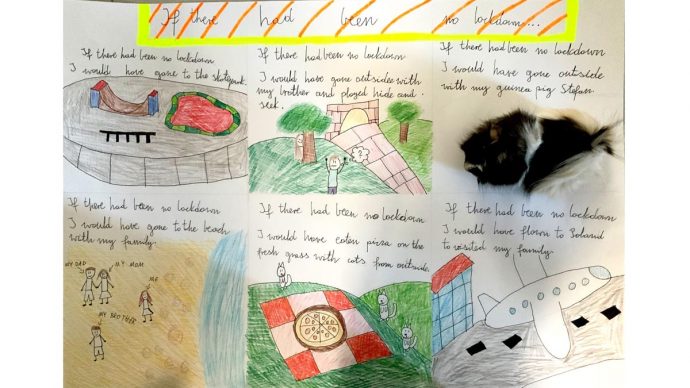 If there had been no lockdown...
If there had been no lockdown
I would have gone to the skatepark.
If there had been no lockdown
I would have gone outside with
my brother and played hide and
seek.
?
If there had been no lockdown
I would have gone outside
with my guinea pig Stefan.
If there had been no lockdown
I would have gone to the beach
with my family.
MY DAD
MY MOM
ME
MY BROTHER
If there had been no lockdown
I would have eaten pizza on the
fresh grass with cats from outside.
If there had been no lockdown
I would have flown to Poland
to visited my family.